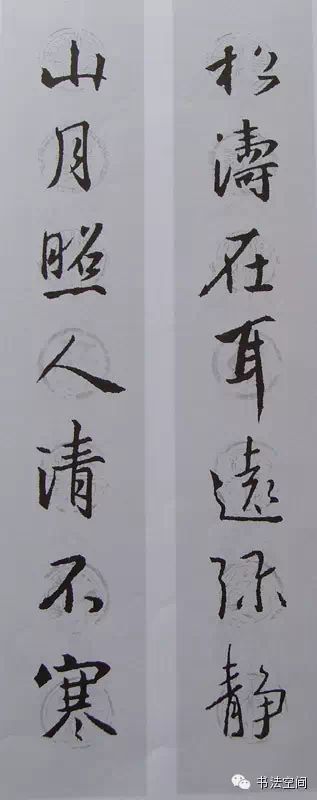 松濤在耳遠弥静
山月照人清不寒
书法空间